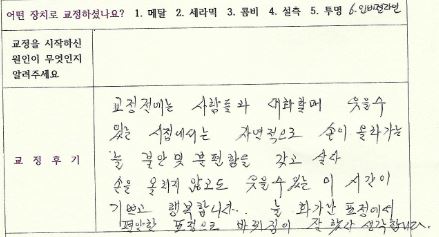 어떤 장치로 교정하셨나요? 1. 메탈 2. 세라믹 3. 콤비 4. 설측 5. 투명 6. 인비절라인
교정을 시작하신
원인이 무엇인지
알려주세요
교 정 후 기
교정전에는 사람들과 대화할때 웃을수
있는 시점에서는 자연적으로 손이 올라가는
늘 불안및 불편함을 갖고 살다
손을 올리지 않고도 웃을수 있는 이 시간이
기쁘고 행복합니다.. 늘 화가난 표정에서
편안한 표정으로 바뀌짐이 잘 했다 생각합니다.